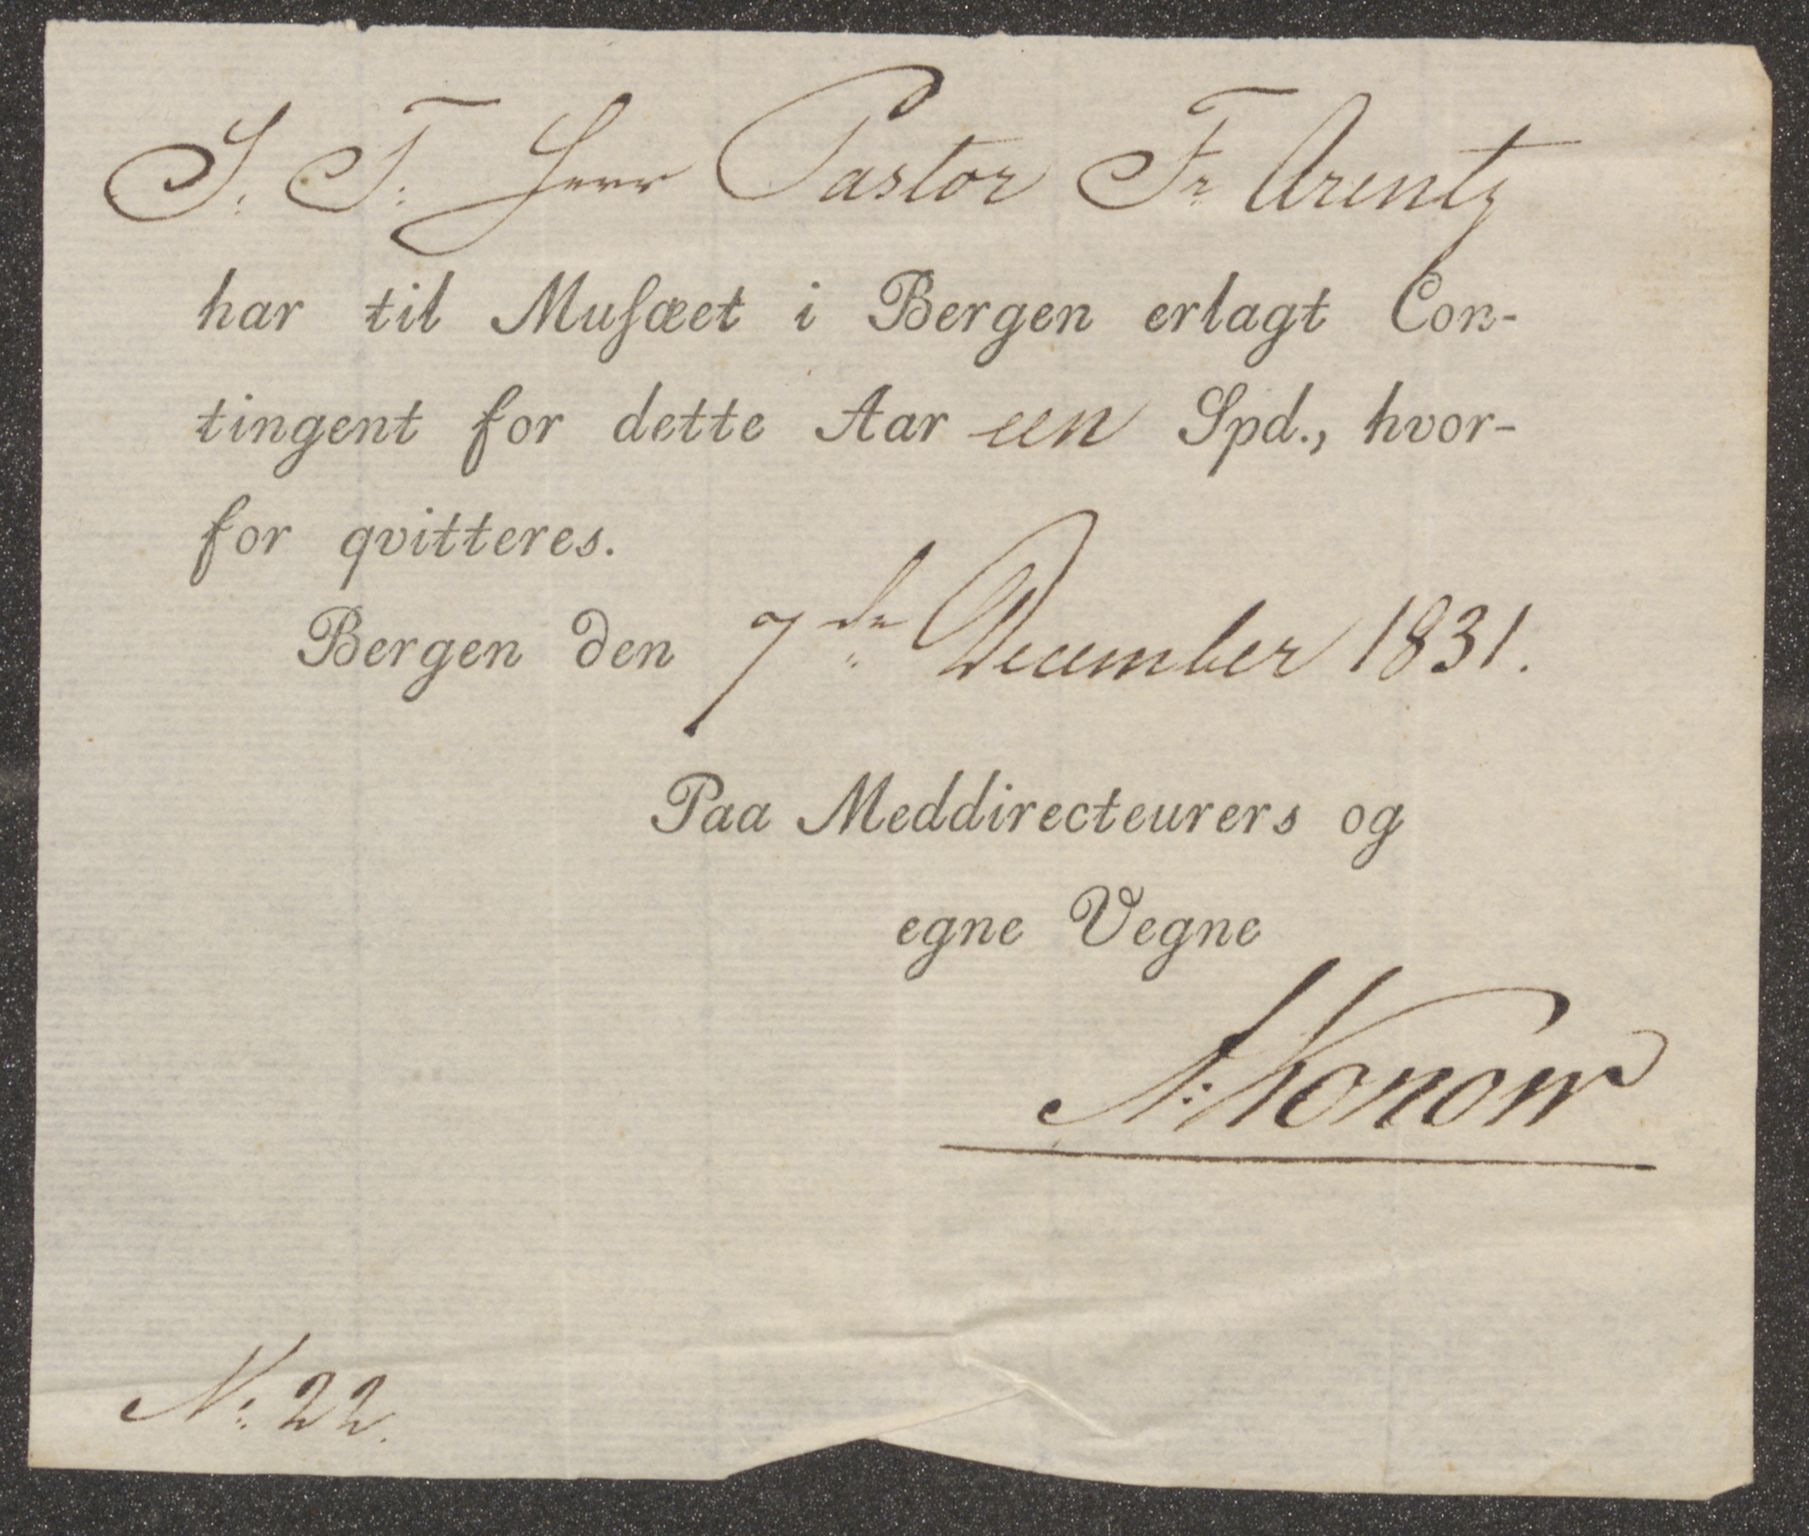 S. T. Herr Pastor Fr Arentz
har til Muſæet i Bergen erlagt Con-
tingent for dette Aar een Spd., hvor-
for qvitteres.
Bergen den 7de December 1831.
Paa Meddirecteurers og
egne Vegne
A: Konow
No: 22.